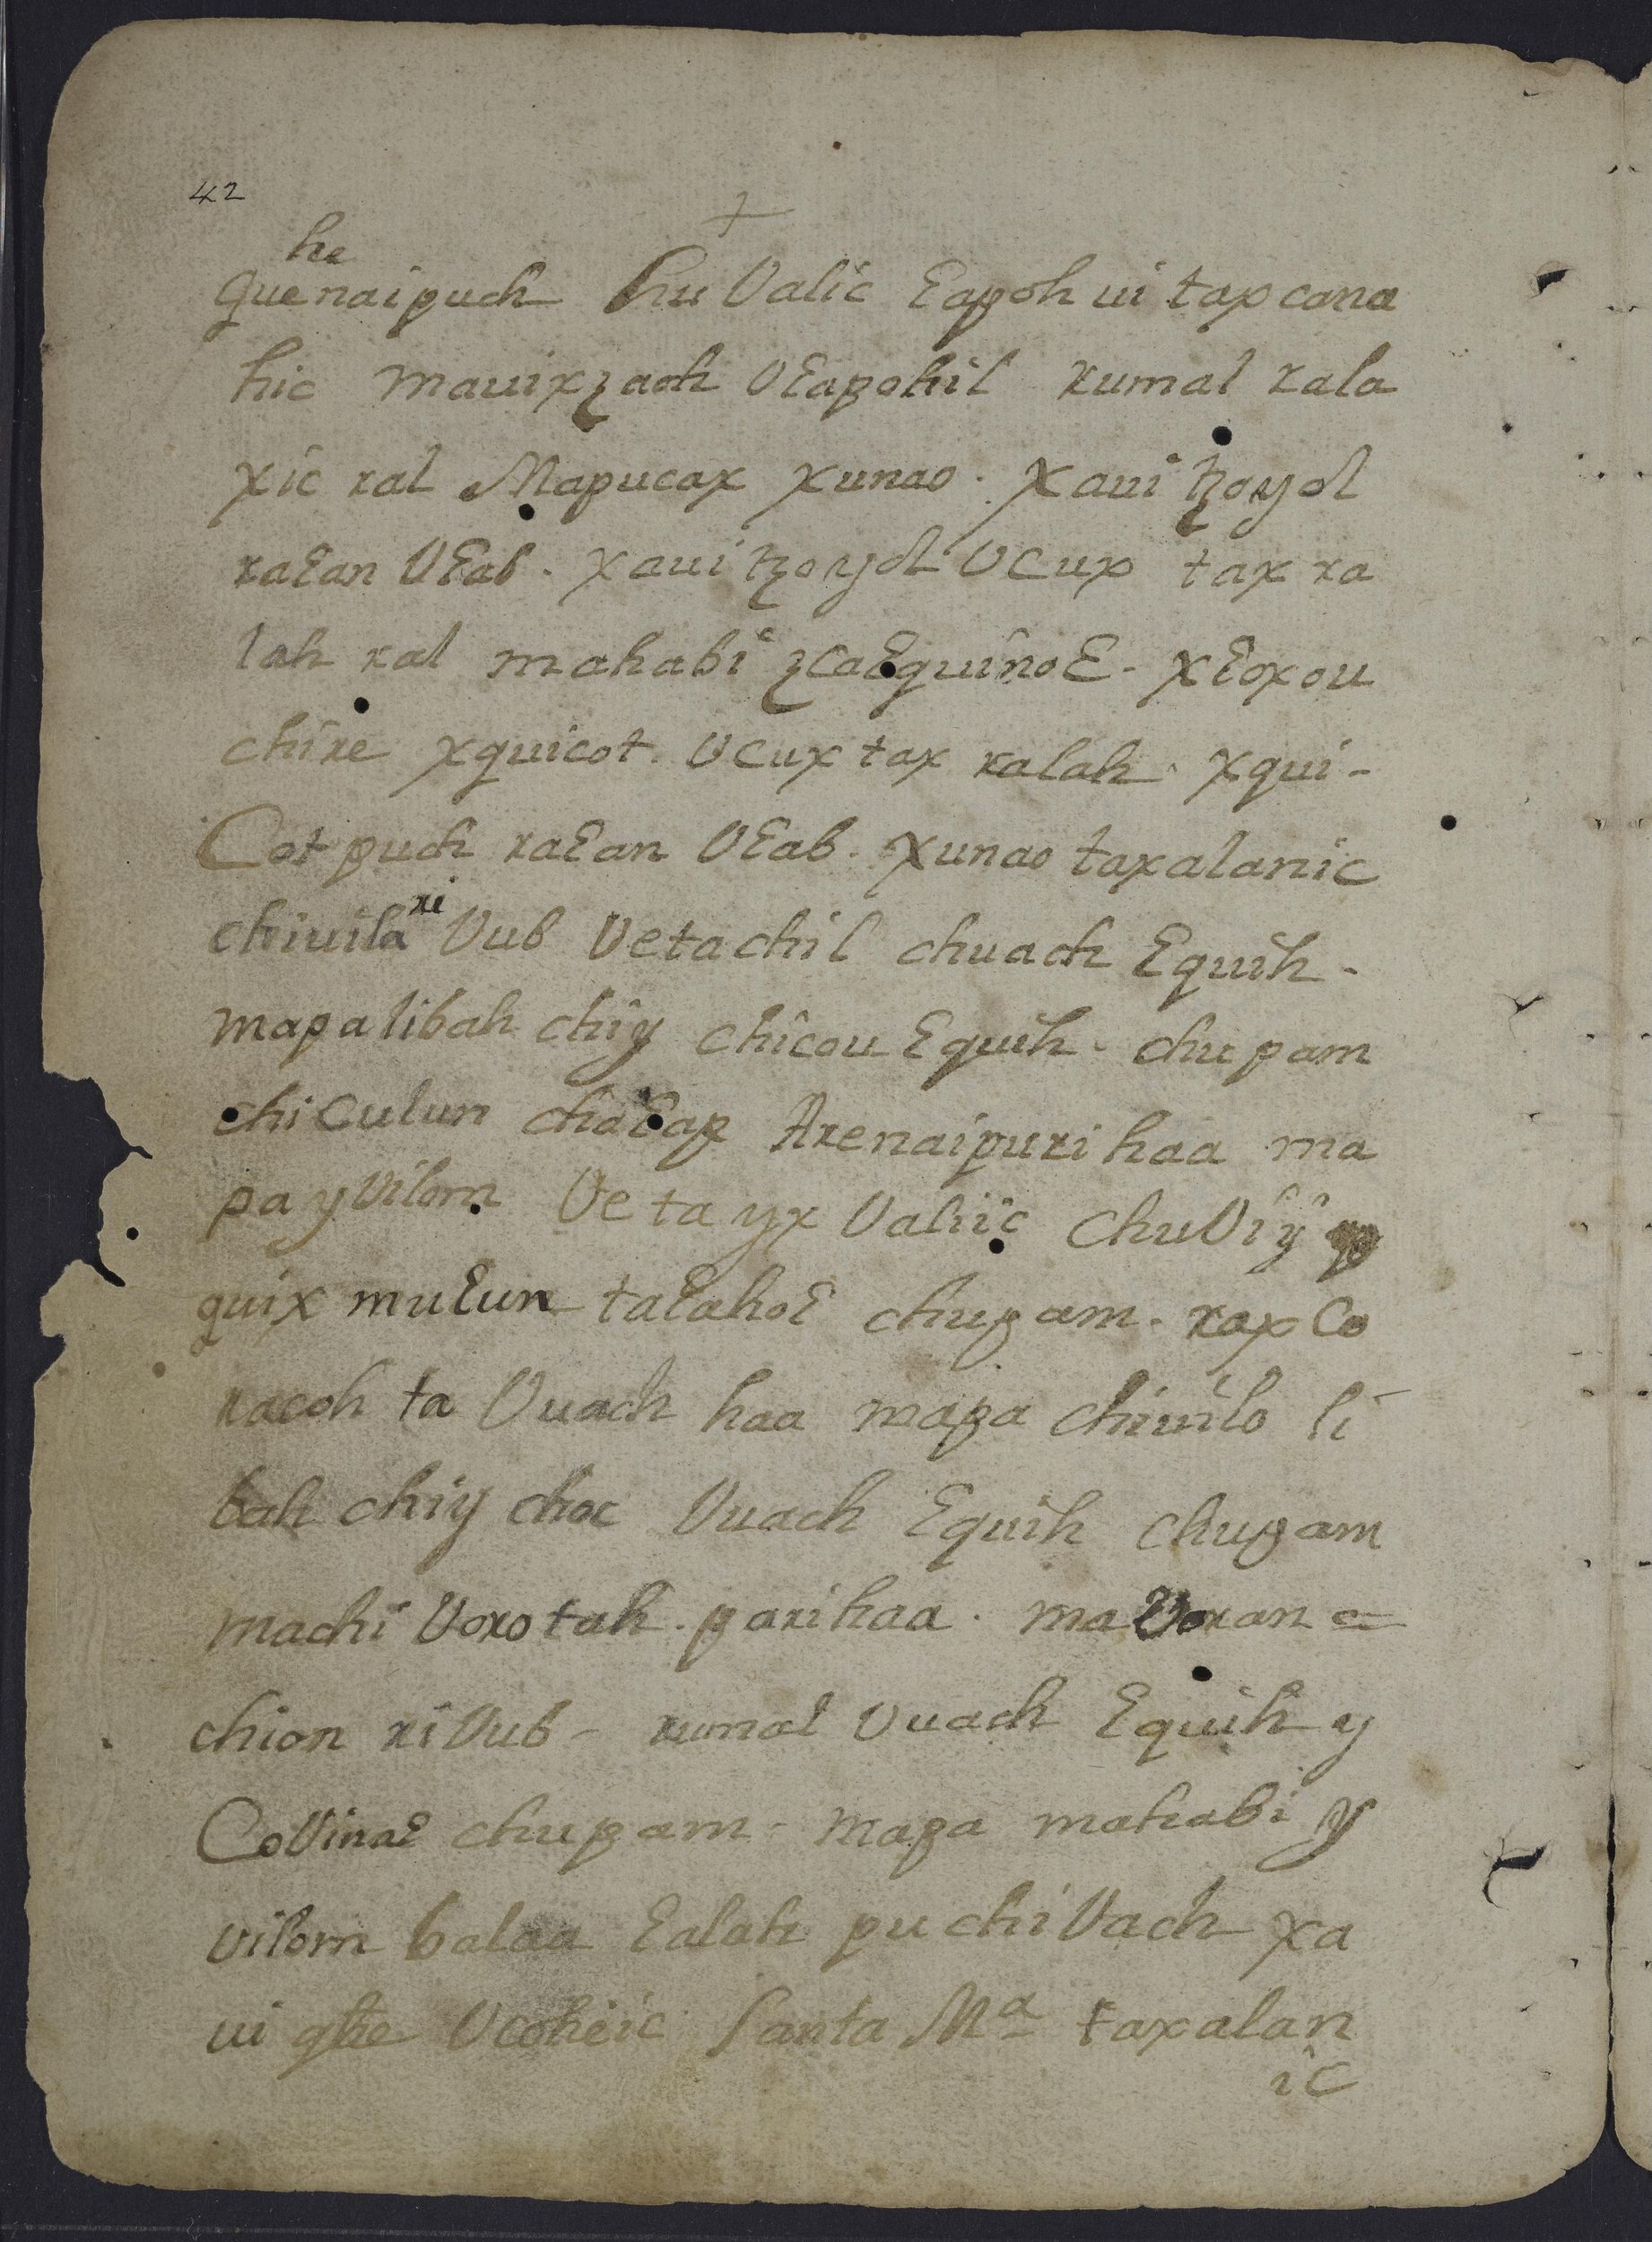 42
+
he
quenaipuch chu Valic Ɛapoh ui taxcana
hic mauixzach VƐapohil rumal rala
xic ral Mapucax xunao. xaui tzoyol
raƐan VƐab. xaui tzoyol Vcux tax ra
lah ral mahabi zcaƐquinoƐ. xƐoxou
chire xquicot. Vcux tax ralah. xqui-
Cot puch raƐan VƐab. xunao taxalanic
chiuila ri Vub Vetachil chuach Ɛquih.
mapalibah chiy chicou Ɛquih. chupam
chiculun chaƐap Arenaipuri haa ma
pa yvilom Veta yx Valiic chuViy
quix muƐun taƐahoƐ chupam. rax Co
racoh ta Vuach haa mapa chiuilo li
bah chiy choc Vuach Ɛquih chupam
machi Voxotah. parihaa. maVoxan
chion ri Vub - rumal Vuach Ɛquih y
CoVinaƐ chupam. mapa mahabi y
vilom balaa Ɛalah puchi Vach xa
ui qhe Vcoheic Santa Mª taxalan
ic